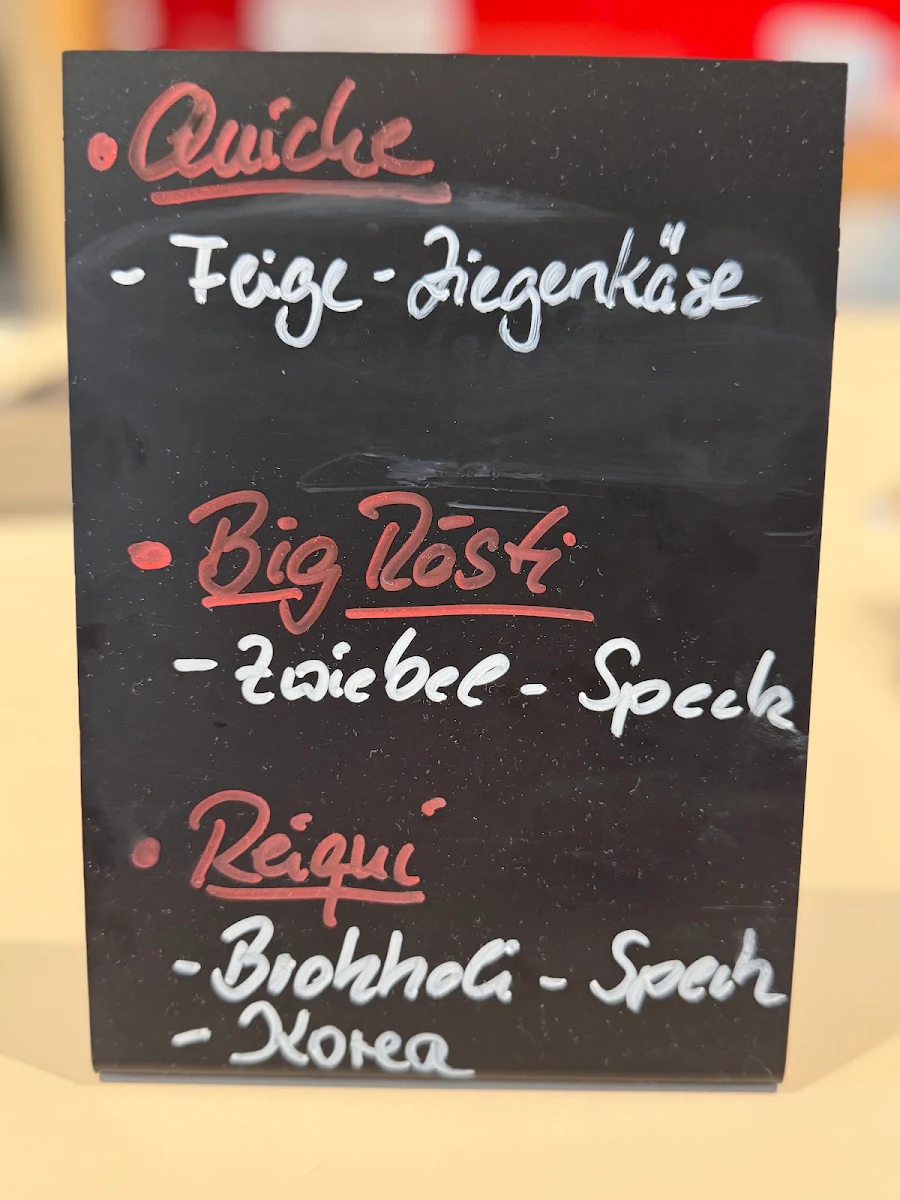 • Quiche
- Feige - Ziegenkäse
• Big Rösti
- Zwiebel - Speck
• Reiqui
- Brokkoli - Speck
- Korea